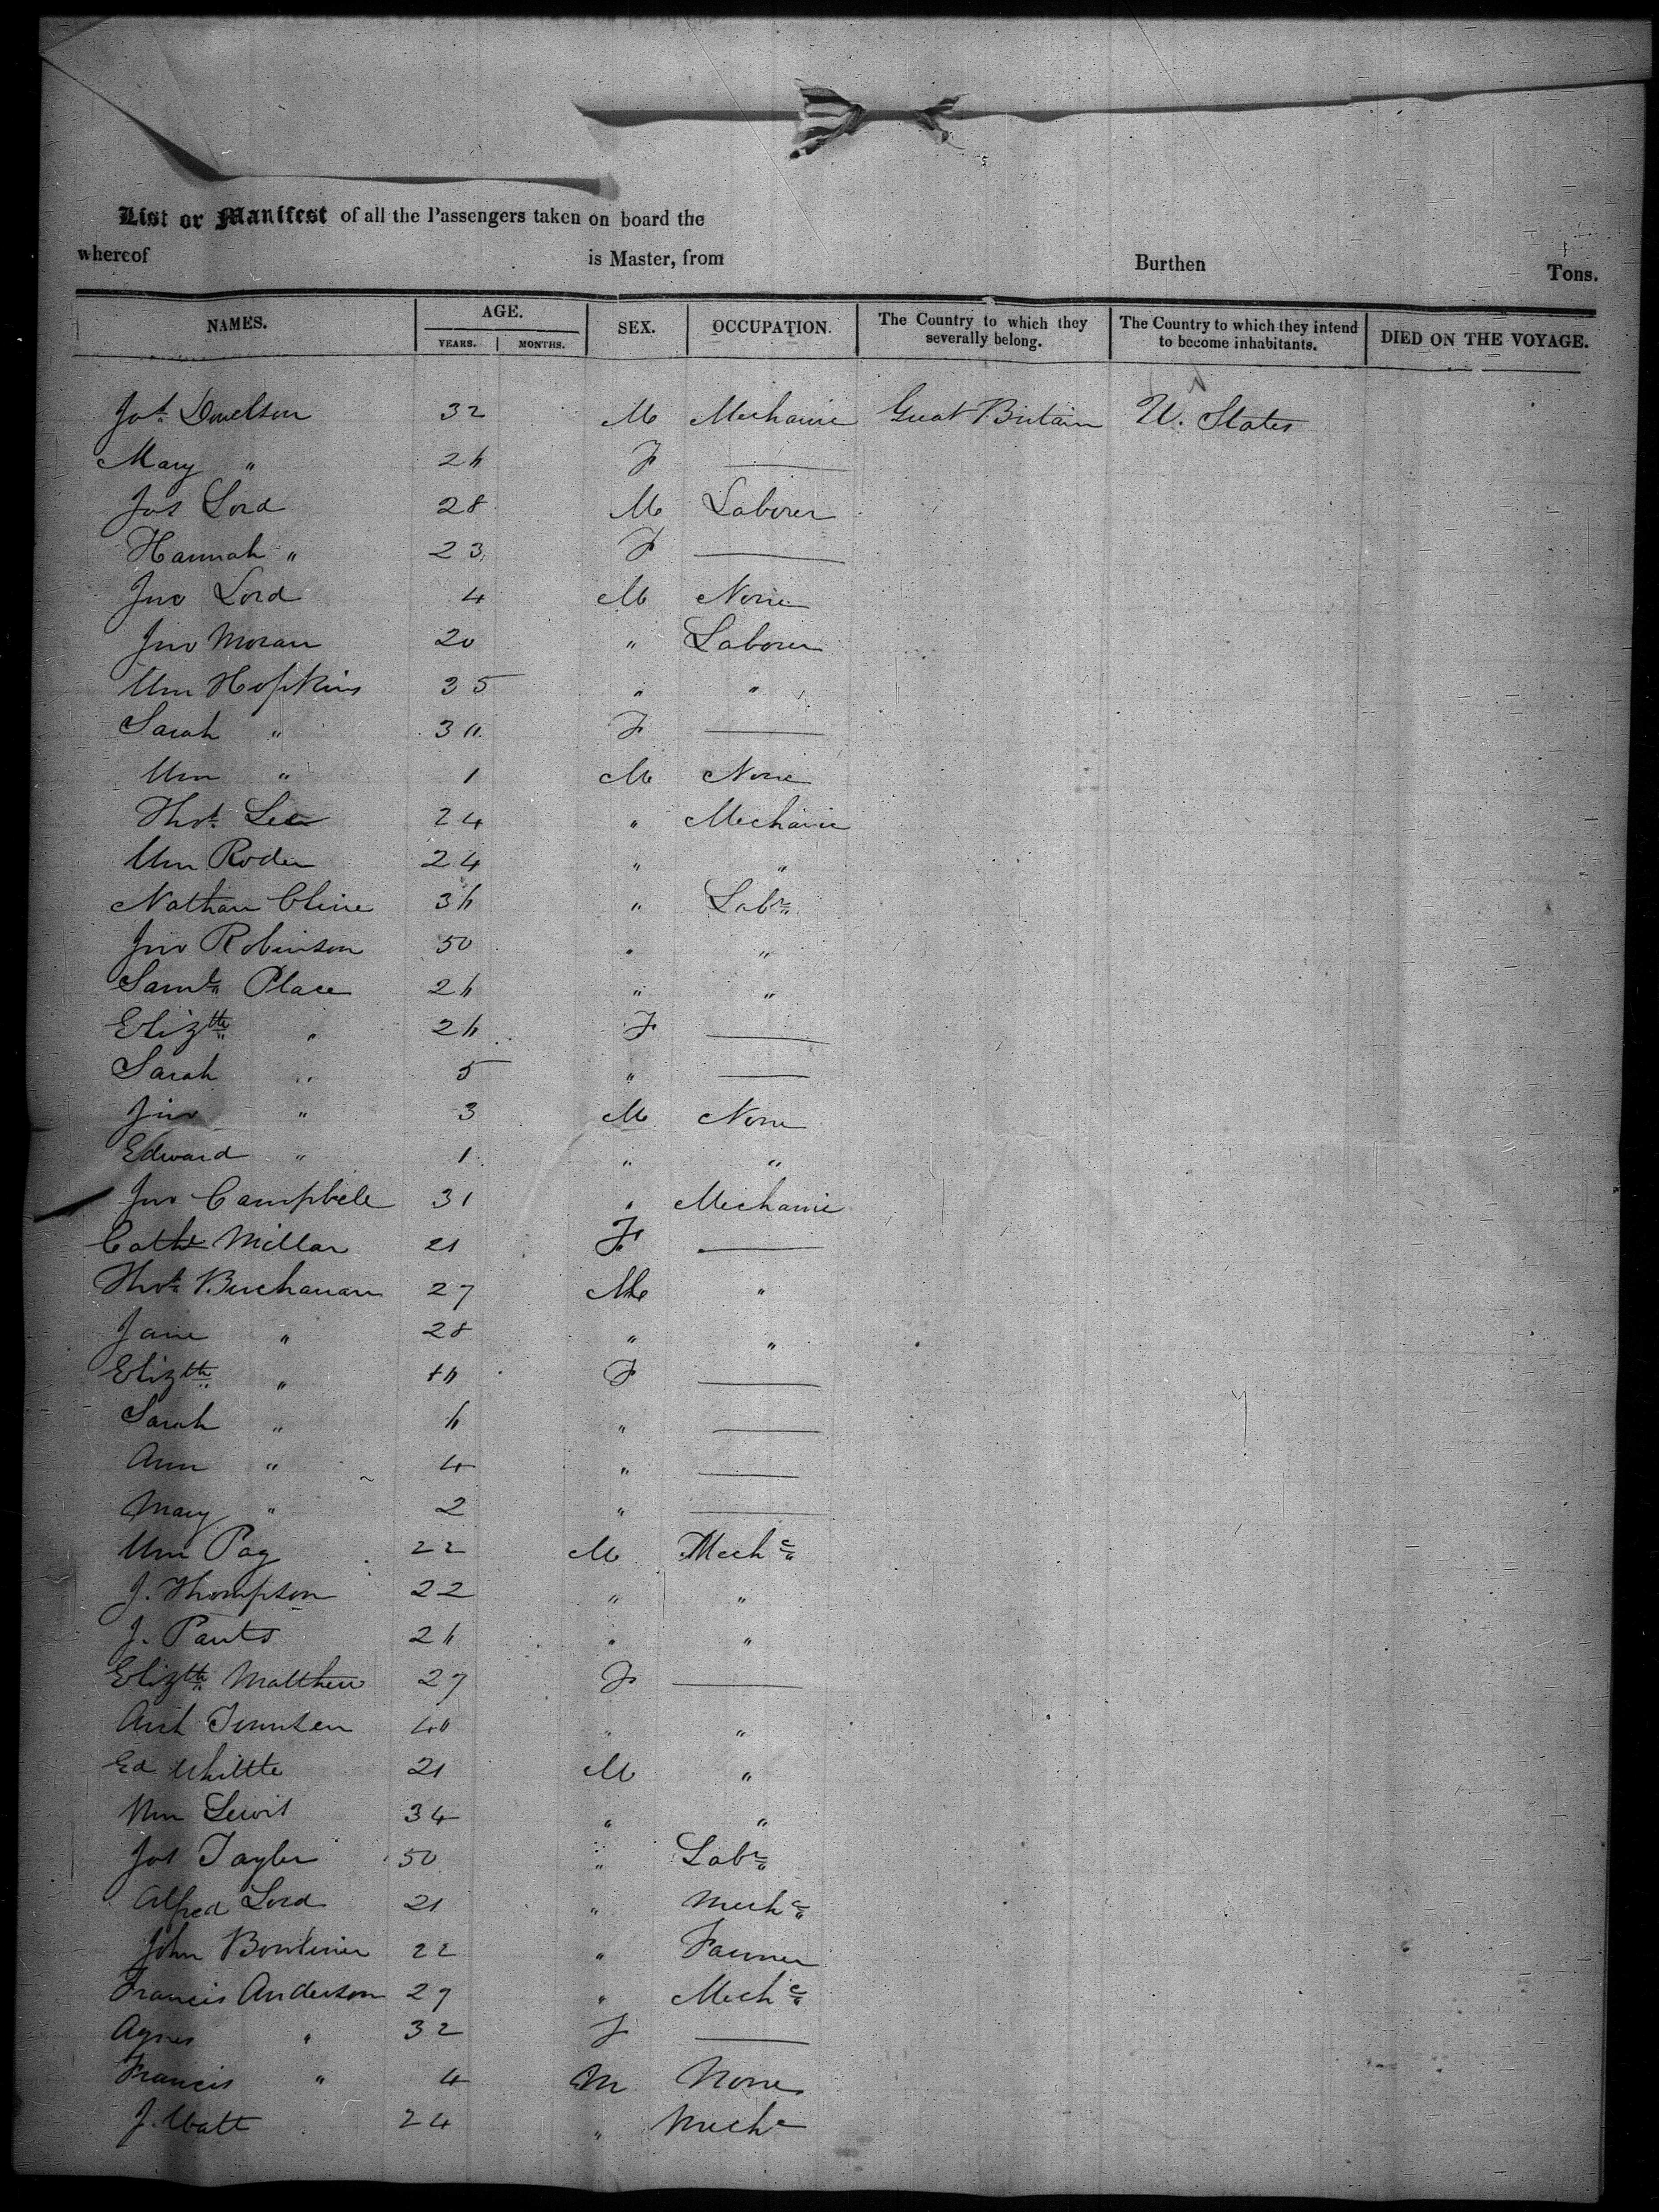 List or Manifest of all the Passengers taken on board the
whereof is Master, from Burthen Tons.
NAMES. AGE. YEARS. MONTHS. SEX. OCCUPATION. The Country to which they severally belong. The Country to which they intend to become inhabitants. DIED ON THE VOYAGE.
Jos. 32 M Mechanic Great Britain U. States
Mary " 26 F
Jos Lord 28 M Laborer
Hannah " 23 F
Jno Lord 4 M None
Jno Moran 20 " Laborer
Wm Hopkins 35 " "
Sarah " 30 F
Wm " 1 M None
Thos. Lee 24 " Mechanic
Wm Roder 24 " "
Nathan Cline 36 " Labr
Jno Robinson 50 " "
Saml Place 26 " "
Elizth " 26 F
Sarah " 5 "
Jno " 3 M None
Edward " 1 " "
Jno Campbell 31 " Mechanic
Cathe Millar 21 F
Thos Buchanan 27 M "
Jane " 28 " "
Elizth " F
Sarah " 6 "
Ann " 4 "
Mary " 2 "
Wm Pag 22 M Mechc
J. Thompson 22 " "
J. Pants 26 " "
Elizth Matthew 27 F
Arch 40 " "
Ed Whittle 21 M "
Wm Lewis 34 " "
Jos Taylor 50 " Labr
Alfred Lord 21 " Mechc
John 22 " Farmer
Francis Anderson 27 " Mechc
Agnes " 32 F
Francis " 4 M None
J. Watt 24 " Mechc